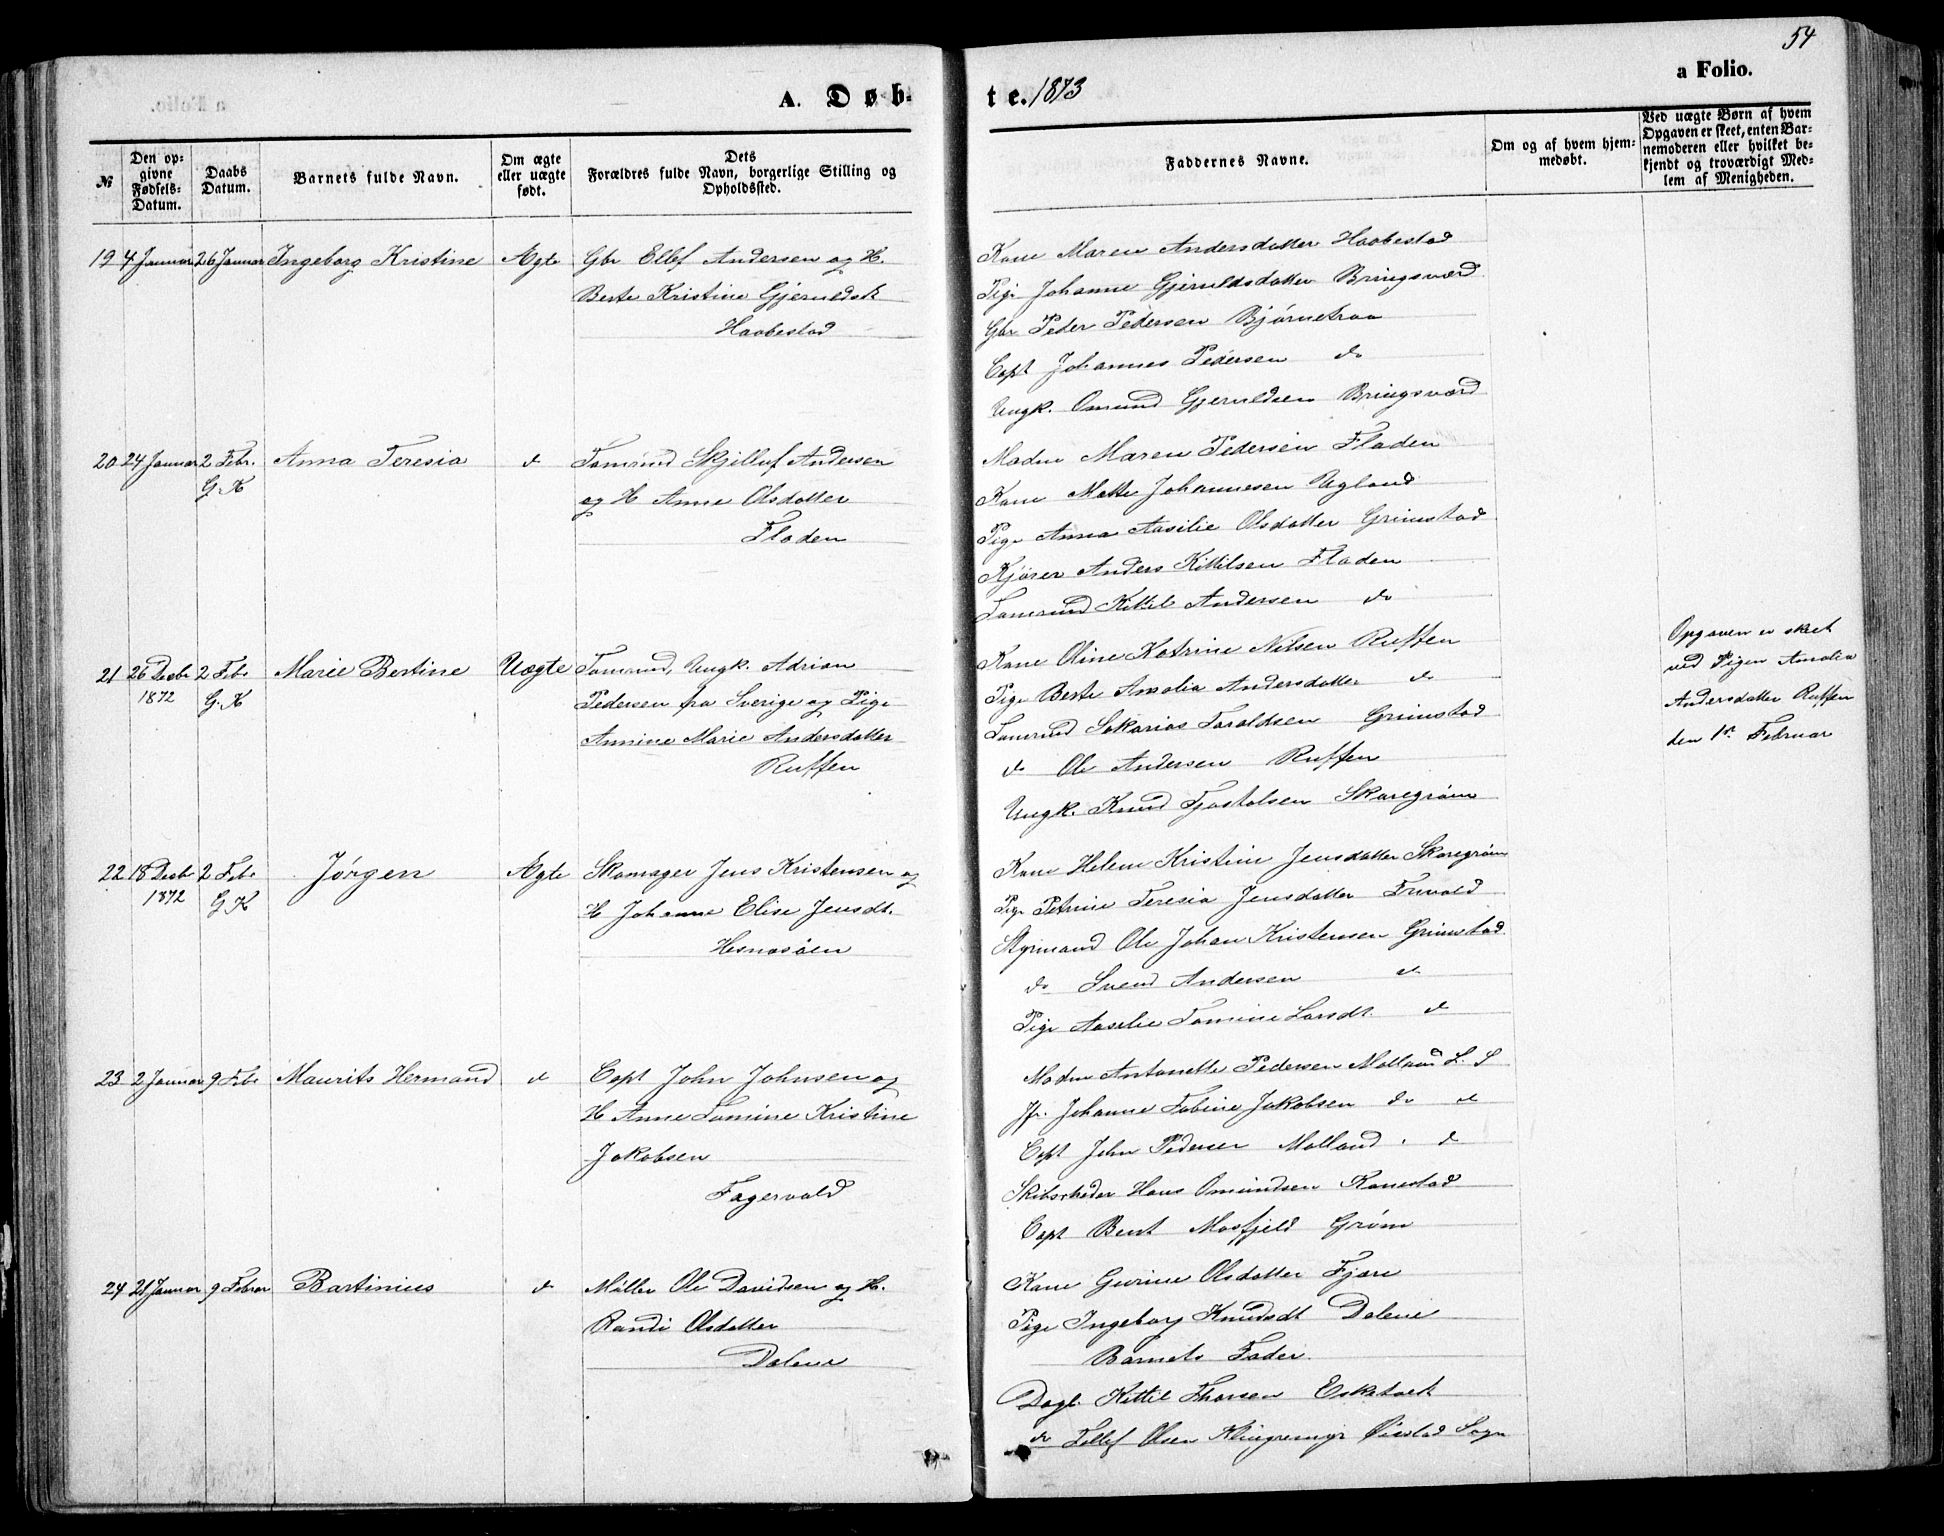 54
a Folio.
A. Døb-
te. 1873
№
Den op-
givne
Fødsels-
Datum.
Daabs
Datum.
Barnets fulde Navn.
Om ægte
eller uægte
født.
Dets
Forældres fulde Navn, borgerlige Stilling og
Opholdssted.
Faddernes Navne.
Om og af hvem hjem-
medøbt.
Ved uægte Børn af hvem
Opgaven er skeet, enten Bar-
nemoderen eller hvilket be-
kjendt og troværdigt Med-
lem af Menigheden.
19 4 Januar 26 Januar Ingeborg Kristine Ægte Gbr Ellef Andersen og H.
Berte Kristine Gjeruldsdt
Haabestad
Kone Maren Andersdatter Haabestad
Pige Johanne Gjeruldsdatter Bringsværd
Gbr Peder Pedersen Bjørnetraa
Capt Johannes Pedersen do
Ungk. Omund Gjeruldsen Bringsværd
20 24 Januar 2 Febr. Anna Teresia d Tømmd Skjelluf Andersen
G. K og H Anne Olsdatter
Fladen
Madm Maren Pedersen Fladen
Kone Mette Johannesen Ugland
Pige Anna Aasilie Olsdatter Grimstad
Kjøser Anders Kittilsen Fladen
Tømmd Kittil Andersen do
21 26 Decbr 2 Febr Marie Bertine Uægte Tømmd, Ungk. Adrian
1872 G. K Pedersen fra Sverige og Pige
Annine Marie Andersdatter
Ruffen
Kone Oline Katrine Nilsen Ruffen
Pige Berte Amalia Andersdatter do
Tømmd Sakarias Taraldsen Grimstad
do Ole Andersen Ruffen
Ungk. Knud Tjostolsen Skaregrøm
Opgaven er skeet
ved Pigen Amalia
Andersdatter Ruffen
den 1st Februar
22 18 Decbr 2 Febr Jørgen Ægte Skomager Jens Kristensen og
1872 G K H Johanne Elise Jensdt.
Hesnæsøen
Kone Helene Kristine Jensdatter Skaregrøm
Pige Petrine Teresia Jensdatter Frivold
Styrmand Ole Johan Kristensen Grimstad
do Svend Andersen d
Pige Aaselie Tomine Larsdt. d
23 2 Januar 9 Febr Maurits Hermand d Capt John Johnsen og
H Anne Tomine Kristine
Jakobsen
Fagervold
Madm Antonette Pedersen Molland L. S
Jfr. Johanne Tobine Jakobsen do d
Capt John Pedersen Molland d
Skibsrheder Hans Omundsen Kanestad
Capt Bent Mosfjeld Grøm
24 21 Januar 9 Febrar Bartinius d Møller Ole Davidsen og H.
Randi Olsdatter
Dalene
Kone Gurine Olsdatter Fjære
Pige Ingeborg Knudsdt Dalene
Barnets Fader.
Dagl. Kittil Thorsen Eskedal
do Tellef Olsen Klingremyr Øiestad Sogn